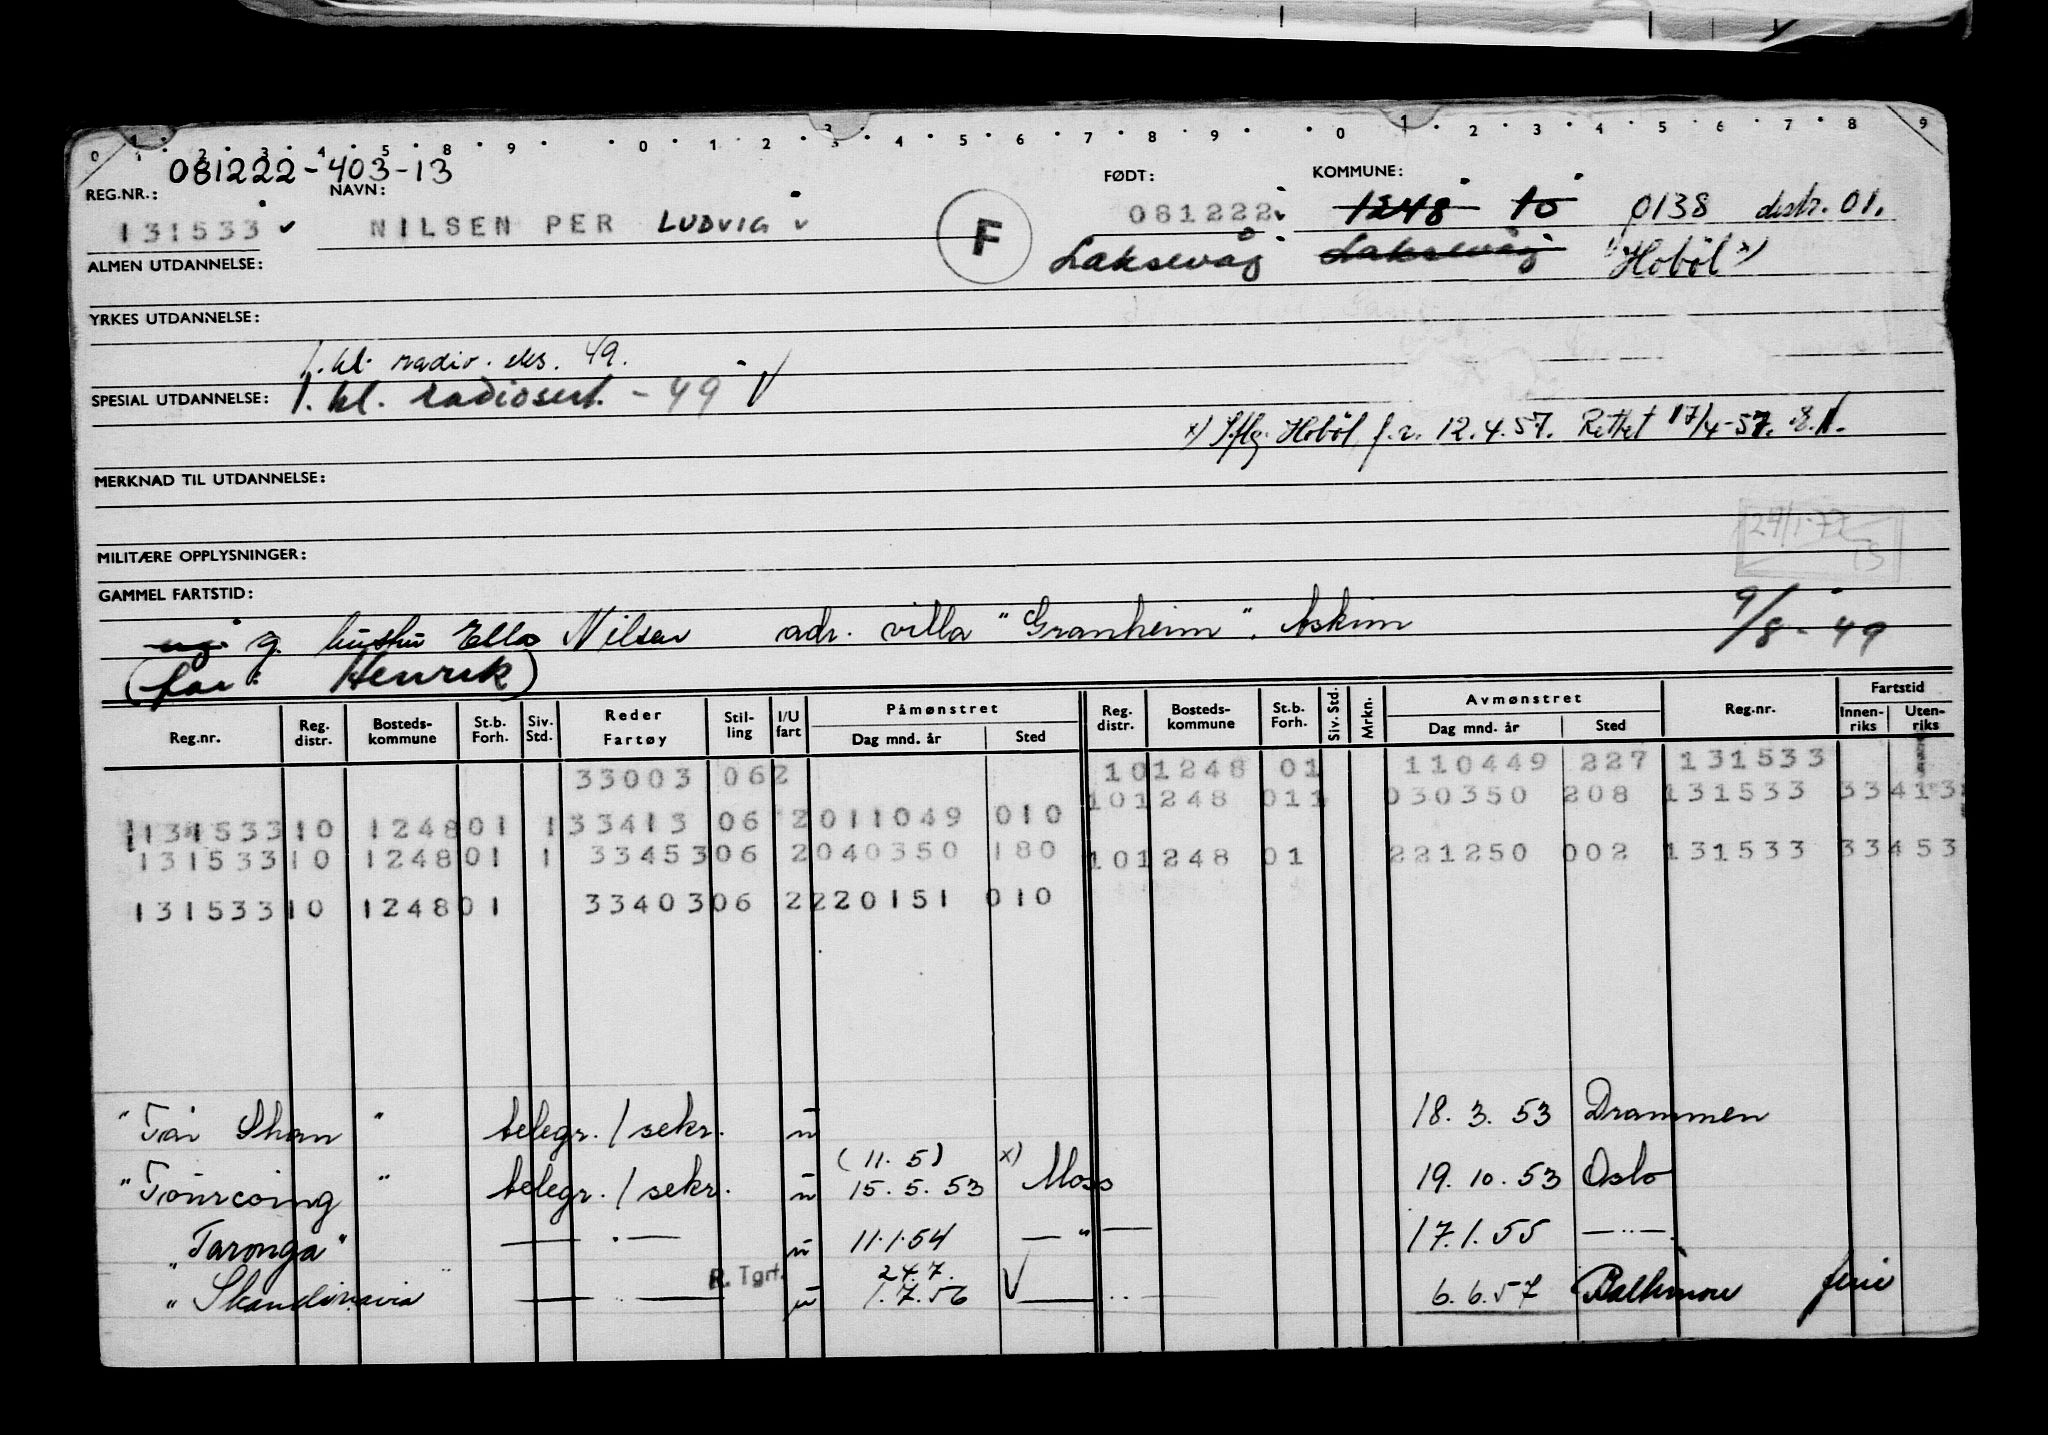 0 1 2 3 4 5 8 9 0 1 2 3 4 5 6 7 8 9 0 1 2 3 4 5 6 7 8 9
081222-403-13
REG.NR.: NAVN: FØDT: KOMMUNE:
131533 NILSEN PER LUDVIG F 081222 1248 10 0138 distr. 01.
ALMEN UTDANNELSE: Laksevåg Laksevåg Hobøl x)
YRKES UTDANNELSE:
1. kl. radio. eks. 49.
SPESIAL UTDANNELSE: 1. kl. radiosert. - 49 V
x) Iflg. Hobøl f.r. 12.4.57. Rettet 17/4-57.
MERKNAD TIL UTDANNELSE:
24/1-77
MILITÆRE OPPLYSNINGER:
GAMMEL FARTSTID:
ug. g. hustru Ella Nilsen adr. villa "Granheim". Askim 9/8-49
(far: Henrik)
Reg.nr. Reg. distr. Bosteds-kommune St.b. Forh. Siv. Std. Reder Fartøy Stil-ling I/U fart Påmønstret Dag mnd. år Sted Reg. distr. Bosteds-kommune St.b. Forh. Siv. Std. Mrkn. Avmønstret Dag mnd. år Sted Reg.nr. Fartstid Innen-riks Uten-riks
33003 062 101248 01 110449 227 131533
101248 011 030350 208 131533 33413
131533 10 1248 01 1 33413 06 2 011049 010
131533 10 1248 01 1 33453 06 2 040350 180 101248 01 221250 002 131533 33453
131533 10 1248 01 33403 06 2 220151 010
"Tai Shan" telegr./sekr. u 18.3.53 Drammen
(11.5) x)
"Tourcoing" telegr./sekr. u 15.5.53 Moss 19.10.53 Oslo
"Taronga" — . — u 11.1.54 — " — 17.1.55 — .. —
R. Tgrt. 24.7.
"Skandinavia — . — u 1.7.56 V — .. — 6.6.57 Baltimore ferie